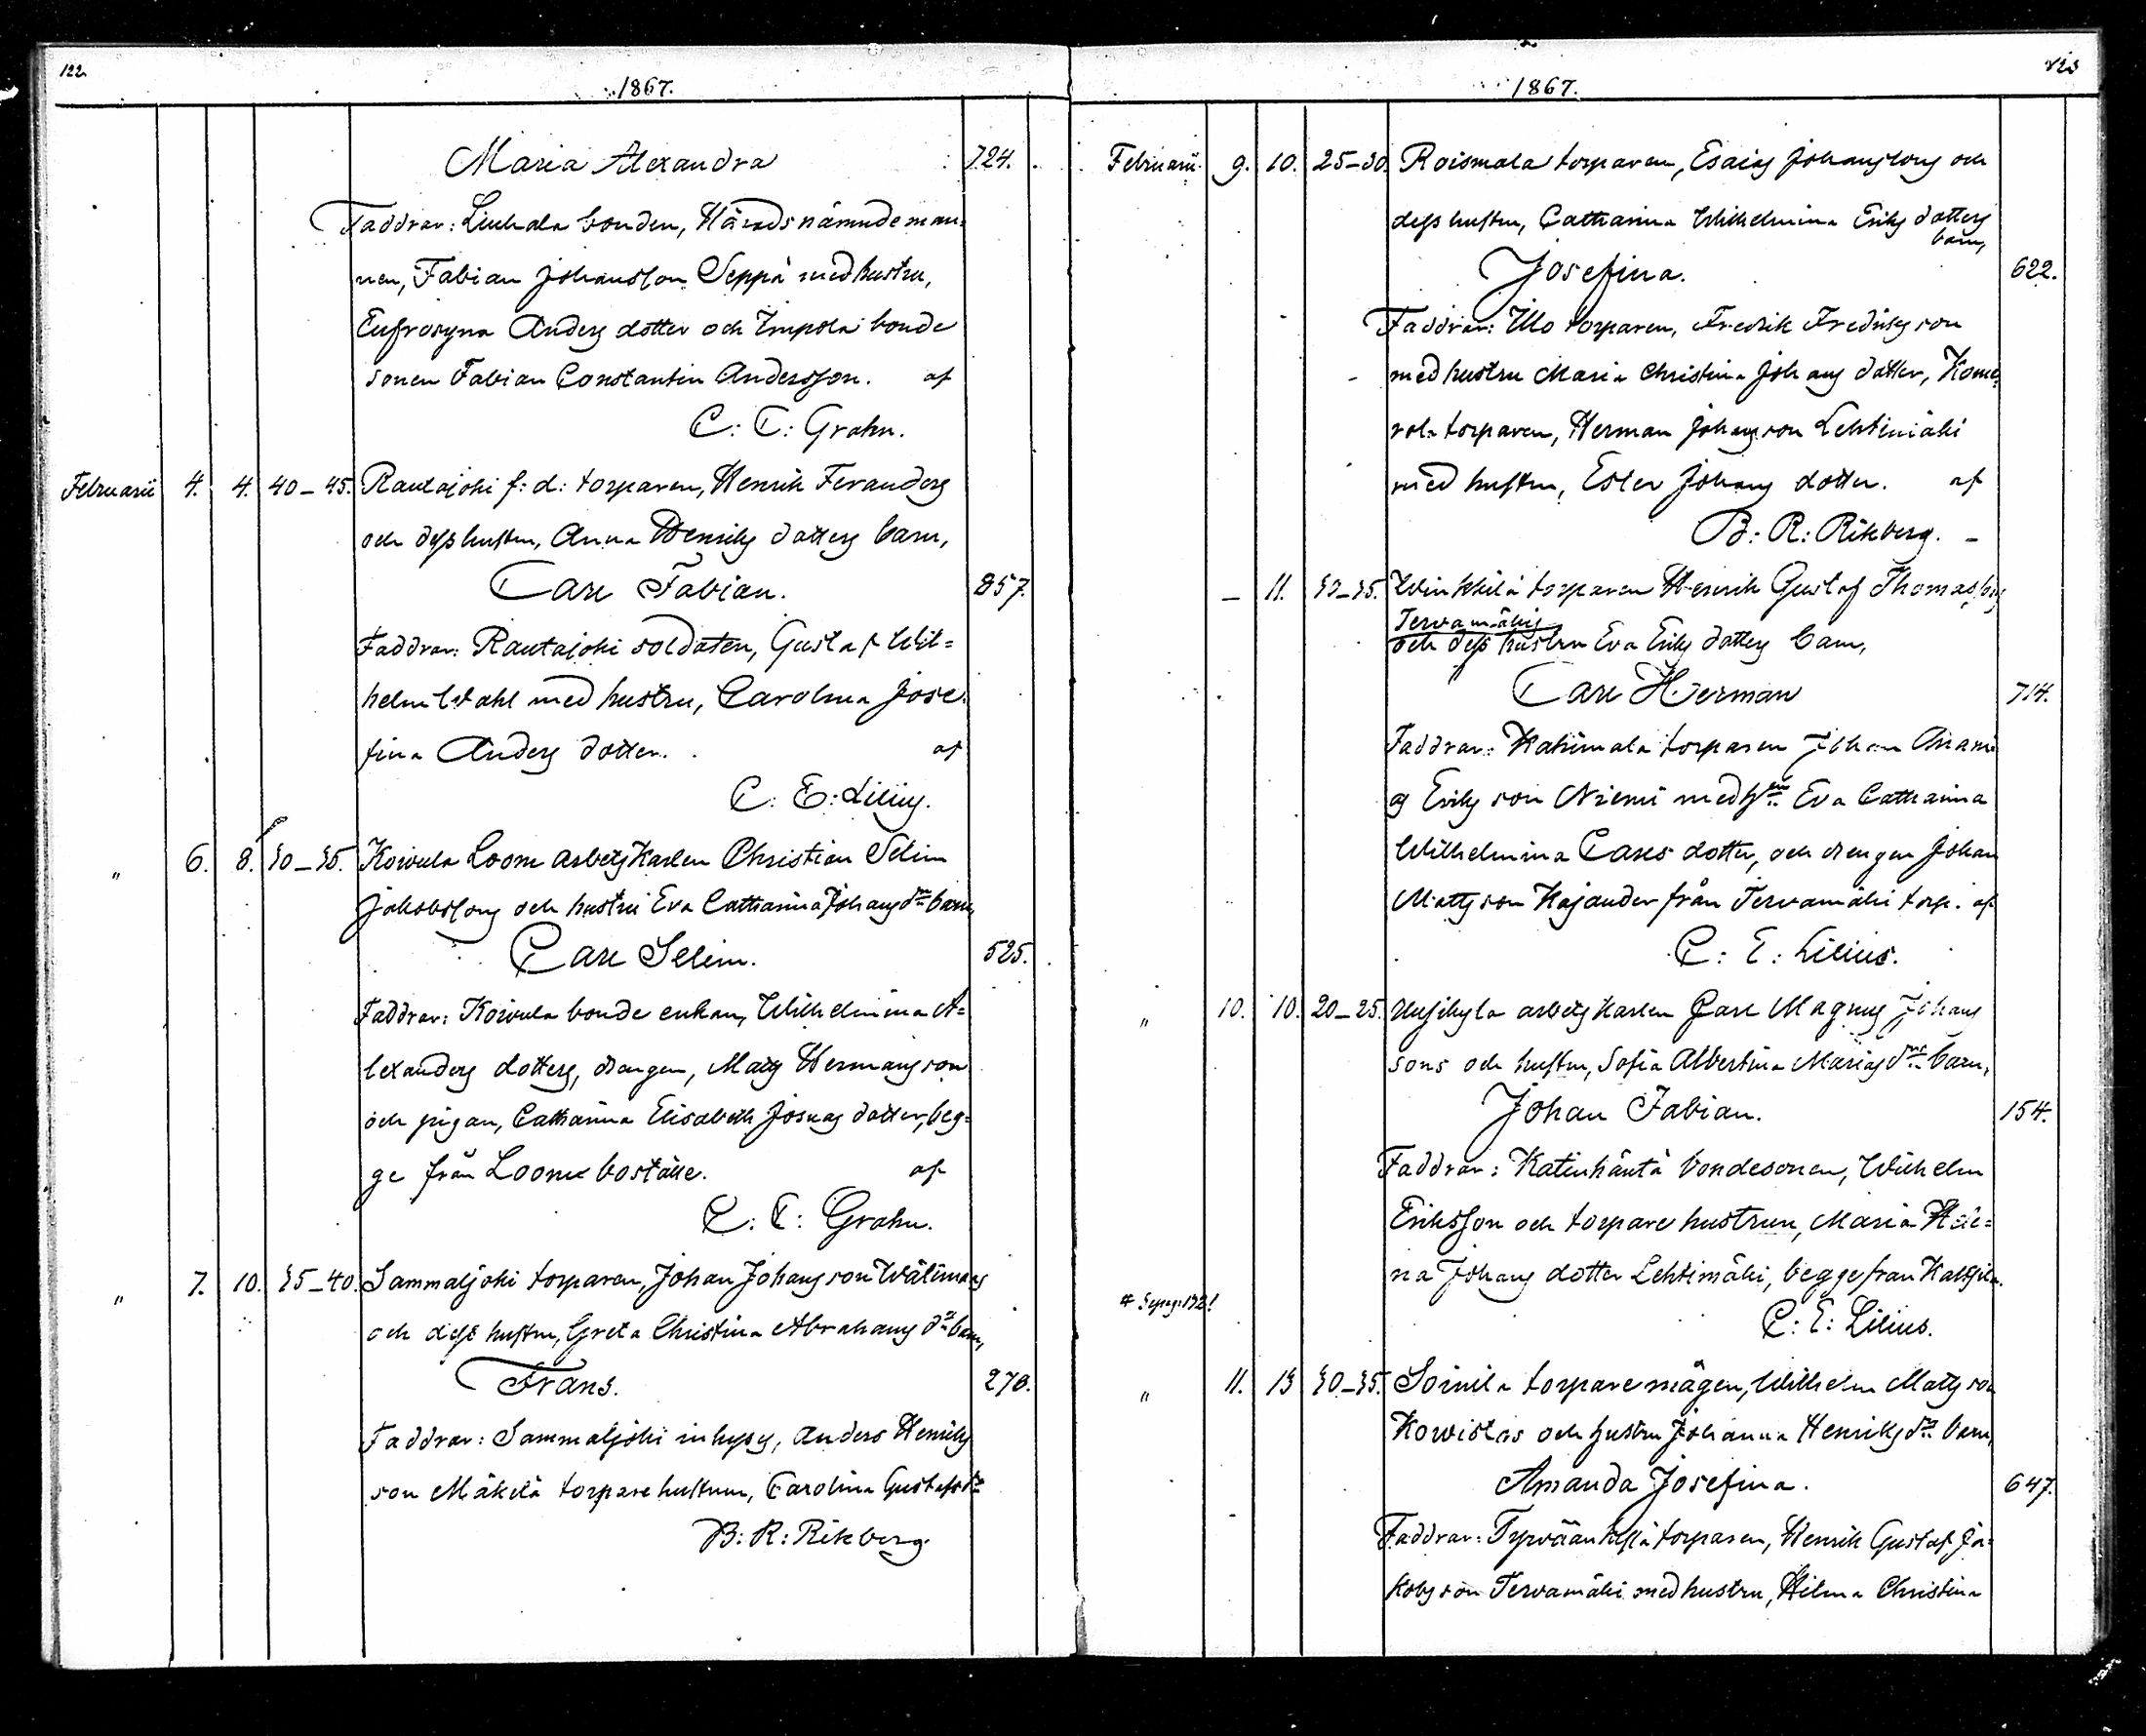 122
1867.
Maria Alexandra 724.
Faddrar: Liuhala bonden, Häradsnämndeman=
nen, Fabian Johansson Seppä med hustru,
Eufrosyna Anders dotter och Impola bonde
sonen Fabian Constantin Andersson. af
C: C: Grahn.
Februarii 4. 4. 40–45. Rautajoki f: d: torparen, Henrik Feranders
och dess hustru, Anna Henriks dotters barn,
Carl Fabian. 857.
Faddrar: Rautajoki soldaten, Gustaf Wil=
helm Stahl med hustru, Carolina Jose
fina Anders dotter. af
C: E: Lilius.
" 6. 8. 30–35. Koivula Loom arbetskarlen Christian Selim
Jakobssons och hustru Eva Catharina Johans dr barn,
Carl Selim. 525.
Faddrar: Koivula bonde enkan, Wilhelmina A=
lexanders dotters, drengen, Mats Hermansson
och pigan, Catharina Elisabeth Josuas dotter, beg=
ge från Loom boställe. af
C: C: Grahn.
" 7. 10. 35–40. Sammaljoki torparen, Johan Johansson Wälimäkis
och dess hustru, Greta Christina Abrahams dr barn,
Frans. 270.
Faddrar: Sammaljoki inhyses, Anders Henriks
son Mäkilä torpare hustrun, Carolina Gustafs dr
B: R: Rikberg.
123
1867.
Februarii 9. 10. 25–30. Roismala torparen, Esaias Johanssons och
dess hustru, Catharina Wilhelmina Eriks dotters
barn,
Josefina. 622.
Faddrar: Illo torparen, Fredrik Fredriksson
med hustru Maria Christina Johans dotter, Kome
rola torparen, Herman Johansson Lehtimäki
med hustru, Ester Johans dotter. af
B: R: Rikberg.
– 11. 30–35. Winkkilä torparen Henrik Gustaf Thomassons
Tervamäkis
och dess hustru Eva Eriks dotters barn,
Carl Herman 714.
Faddrar: Kahimala torparen Johan Anani
as Eriksson Niemi med hru Eva Catharina
Wilhelmina Carls dotter, och drengen Johan
Matsson Kajander från Tervamäki torp. af
C: E: Lilius.
" 10. 10. 20–25. arbetskarlen Carl Magnus Johans
sons och hustru, Sofia Albertina Marias drs barn,
Johan Fabian. 154.
Faddrar: Katinhäntä bondesonen, Wilhelm
Eriksson och torpare hustrun, Maria Hele=
na Johans dotter Lehtimäki, begge från
# Se pag: 132! C: E: Lilius.
" 11. 13 30–35. Soinila torparemågen, Wilhelm Matsson
Kowistas och hustru Johanna Henriks drs barn,
Amanda Josefina. 647.
Faddrar: Tyrväänkylä torparen, Henrik Gustaf Ja=
kobsson Tervamäki med hustru, Hilma Christina